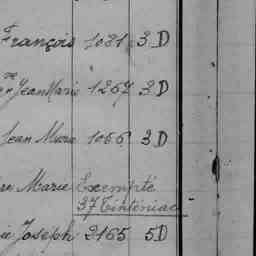 François 1031 3 D
Jean Marie 1267 3 D
Jean Marie 1066 3 D
Marie Exempté
37 Tinténiac
Joseph 2165 5 D